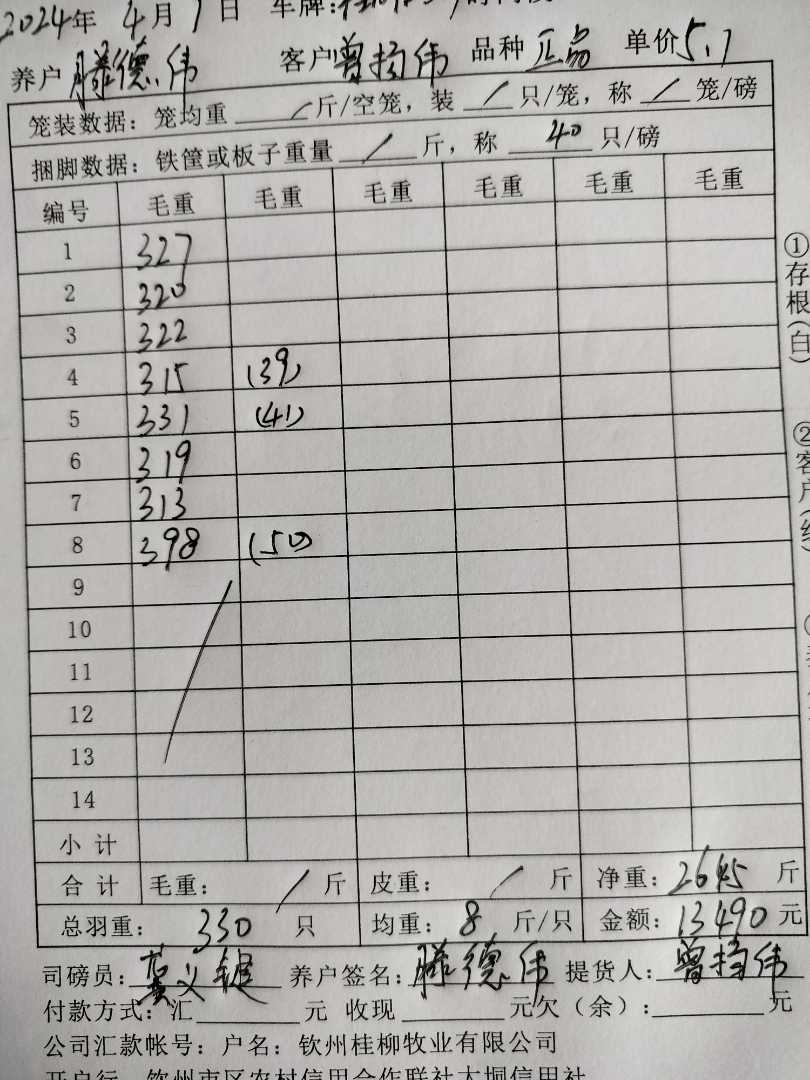 2024年 4月1日 车牌:
养户 滕德伟 客户 曾扬伟 品种 正品 单价 5.1
笼装数据：笼均重 / 斤/空笼，装 / 只/笼，称 / 笼/磅
捆脚数据：铁筐或板子重量 / 斤，称 40 只/磅
编号 毛重 毛重 毛重 毛重 毛重 毛重
1 327
2 320
3 322
4 315 (39)
5 331 (41)
6 319
7 313
8 398 (50)
9
10
11
12
13
14
小 计
合 计 毛重： / 斤 皮重： / 斤 净重：2645 斤
总羽重： 330 只 均重：8 斤/只 金额：13490元
司磅员： 养户签名：滕德伟 提货人：曾扬伟
付款方式：汇 元 收现 元欠（余）： 元
公司汇款帐号：户名：钦州桂柳牧业有限公司
开户行 钦州市区农村信用合作联社大垌信用社
①存根(白)
②客户(红)